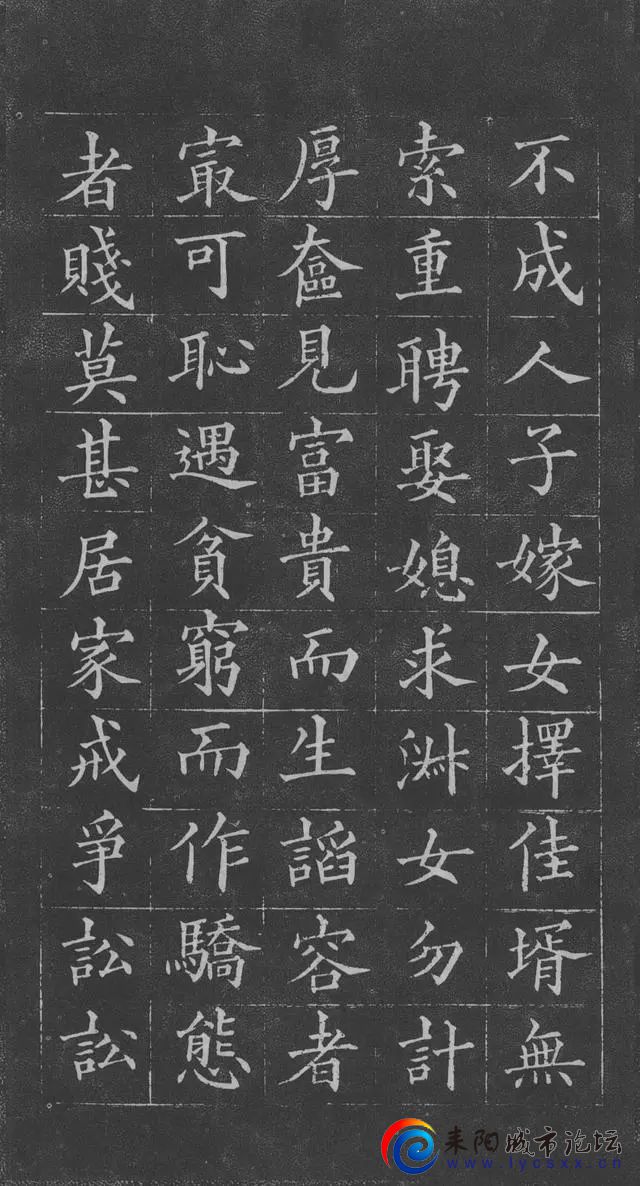 不成人子嫁女擇佳壻無
索重聘娶媳求淑女勿計
厚奩見富貴而生謟容者
冣可恥遇貧窮而作驕態
者賤莫甚居家戒爭訟訟
耒阳城市论坛
www.lycsxx.cn